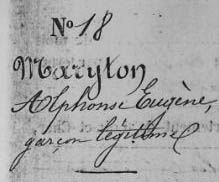 No 18
Maryton
Alphonse Eugène,
garçon légitime